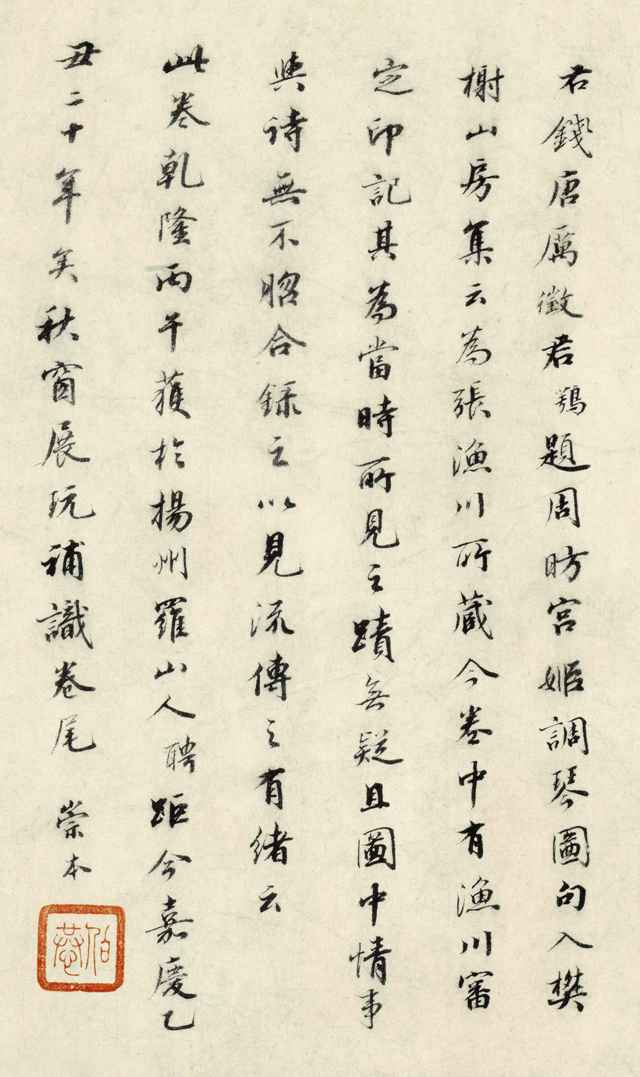 右錢唐厲徵君鶚題周昉宮姬調琴圖句入樊
榭山房集云為張漁川所蔵今卷中有漁川審
定印記其為當時所見之蹟無疑且圖中情事
與詩無不昭合録之以見流傳之有緒云
此卷乾隆丙午獲於揚州羅山人聘距今嘉慶乙
丑二十年矣秋窗展玩補識卷尾 崇本
伯